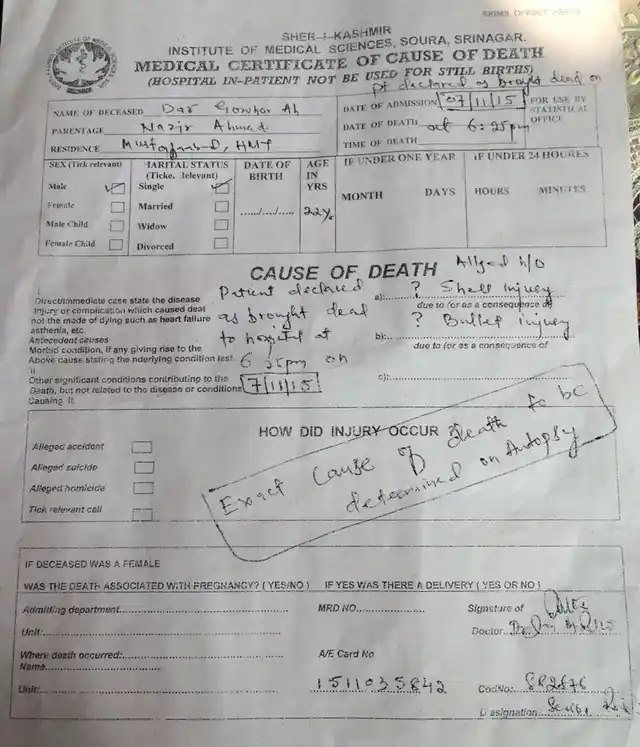 SKIMS OFFSET PRESS
SHER-I-KASHMIR
INSTITUTE OF MEDICAL SCIENCES, SOURA, SRINAGAR.
MEDICAL CERTIFICATE OF CAUSE OF DEATH
(HOSPITAL IN-PATIENT NOT BE USED FOR STILL BIRTHS)
pt declared as brought dead on
NAME OF DECEASED Dar Gowhar Ah
DATE OF ADMISSION 07/11/15
FOR USE BY STATISTICAL OFFICE
PARENTAGE Nazir Ahmad
DATE OF DEATH at 6:25pm
RESIDENCE HMT
TIME OF DEATH
SEX (Tick relevant)
MARITAL STATUS (Ticke. relevant)
DATE OF BIRTH
AGE IN YRS
IF UNDER ONE YEAR
IF UNDER 24 HOURES
Male
Single
Female
Married
...../...../.....
22y
MONTH DAYS
HOURS MINUTES
Male Child
Widow
Female Child
Divorced
CAUSE OF DEATH
Alleged h/o
I.
Direct/immediate case state the disease
Injury or complication which caused deat
not the mode of dying such as heart failure
asthenia, etc.
Antecedent causes
Morbid condition, if any giving rise to the
Above cause stating the nderlying condition last.
II
Other significant conditions contributing to the
Death, but not related to the disease or conditions
Causing it.
Patient declared
as brought dead
to hospital at
6 25pm on
7/11/15
a): ? Shell injury
due to (or as a consequence of
? Bullet injury
b):
due to (or as a consequence of
c):
HOW DID INJURY OCCUR
Alleged accident
Alleged suicide
Alleged homicide
Tick relevant cell
Exact Cause of Death to be
determined on Autopsy
IF DECEASED WAS A FEMALE
WAS THE DEATH ASSOCIATED WITH PREGNANCY? (YES/NO) IF YES WAS THERE A DELIVERY (YES OR NO)
Admitting department MRD NO. Signature of
Unit: Doctor
Where death occurred: A/E Card No
Name
Unit: 1511035842 CodNo:
Designation